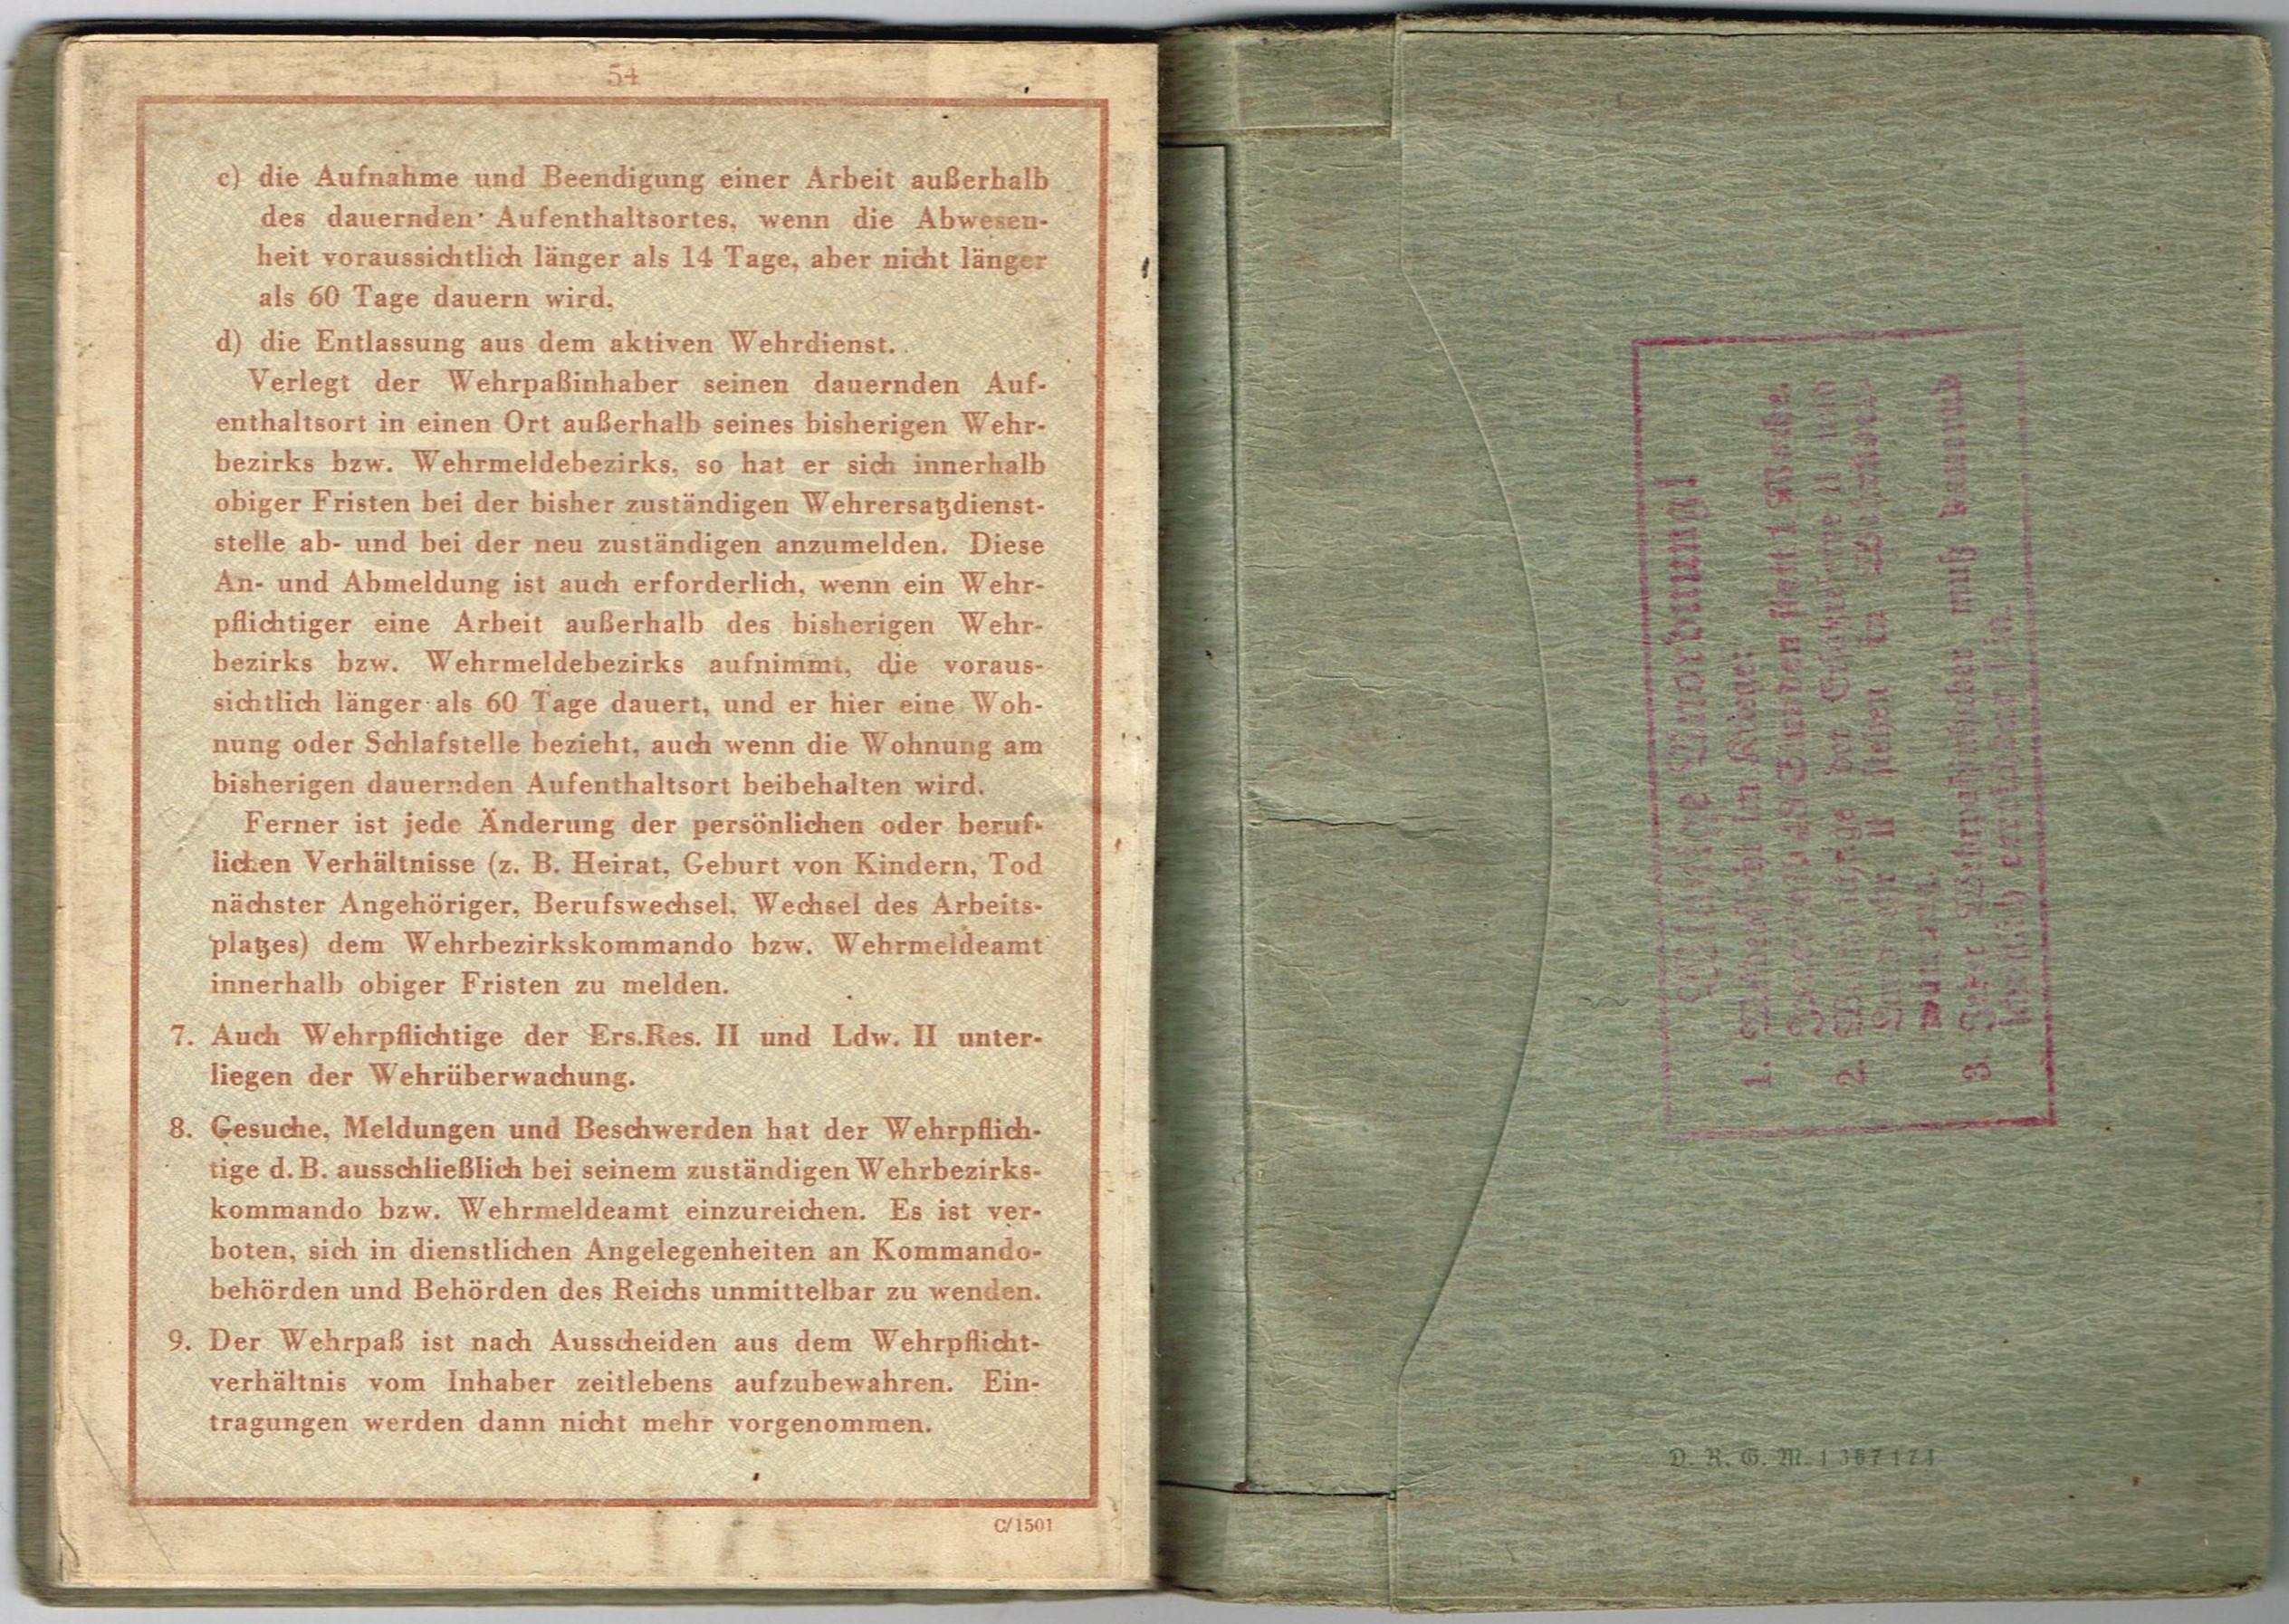 54
c) die Aufnahme und Beendigung einer Arbeit außerhalb
des dauernden Aufenthaltsortes, wenn die Abwesen-
heit voraussichtlich länger als 14 Tage, aber nicht länger
als 60 Tage dauern wird,
d) die Entlassung aus dem aktiven Wehrdienst.
Verlegt der Wehrpaßinhaber seinen dauernden Auf-
enthaltsort in einen Ort außerhalb seines bisherigen Wehr-
bezirks bzw. Wehrmeldebezirks, so hat er sich innerhalb
obiger Fristen bei der bisher zuständigen Wehrersatzdienst-
stelle ab- und bei der neu zuständigen anzumelden. Diese
An- und Abmeldung ist auch erforderlich, wenn ein Wehr-
pflichtiger eine Arbeit außerhalb des bisherigen Wehr-
bezirks bzw. Wehrmeldebezirks aufnimmt, die voraus-
sichtlich länger als 60 Tage dauert, und er hier eine Woh-
nung oder Schlafstelle bezieht, auch wenn die Wohnung am
bisherigen dauernden Aufenthaltsort beibehalten wird.
Ferner ist jede Änderung der persönlichen oder beruf-
lichen Verhältnisse (z. B. Heirat, Geburt von Kindern, Tod
nächster Angehöriger, Berufswechsel, Wechsel des Arbeits-
platzes) dem Wehrbezirkskommando bzw. Wehrmeldeamt
innerhalb obiger Fristen zu melden.
7. Auch Wehrpflichtige der Ers.Res. II und Ldw. II unter-
liegen der Wehrüberwachung.
8. Gesuche, Meldungen und Beschwerden hat der Wehrpflich-
tige d. B. ausschließlich bei seinem zuständigen Wehrbezirks-
kommando bzw. Wehrmeldeamt einzureichen. Es ist ver-
boten, sich in dienstlichen Angelegenheiten an Kommando-
behörden und Behörden des Reichs unmittelbar zu wenden.
9. Der Wehrpaß ist nach Ausscheiden aus dem Wehrpflicht-
verhältnis vom Inhaber zeitlebens aufzubewahren. Ein-
tragungen werden dann nicht mehr vorgenommen.
C/1501
Wichtige Anordnung!
1. Meldepflicht im Kriege:
48 Stunden statt 1 Woche.
2. Wehrpflichtige der Ersatzreserve II und
Landwehr II stehen in Wehrüber-
wachung.
3. Jeder Wehrpaßinhaber muß dauernd
erreichbar sein.
D. R. G. M. 1367171